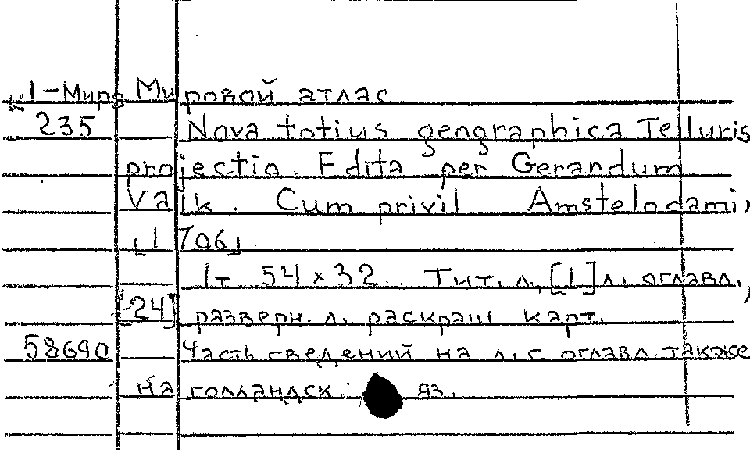 К1-Мира Мировой атлас
235 Nova totius geographica Telluris
projectio. Edita per Gerandum
Valk. Cum privil Amstelodami,
[1706]
1т 54×32 Тит. л., [1] л. оглавл.,
[24] разверн. л. раскраш карт.
58690 Часть сведений на л. с оглавл также
на голландск. яз.